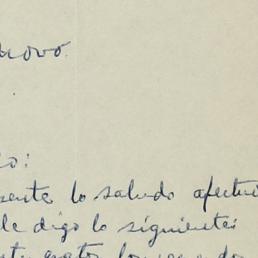 novo.
io:
sente lo saludo afectu
le digo lo siguiente: